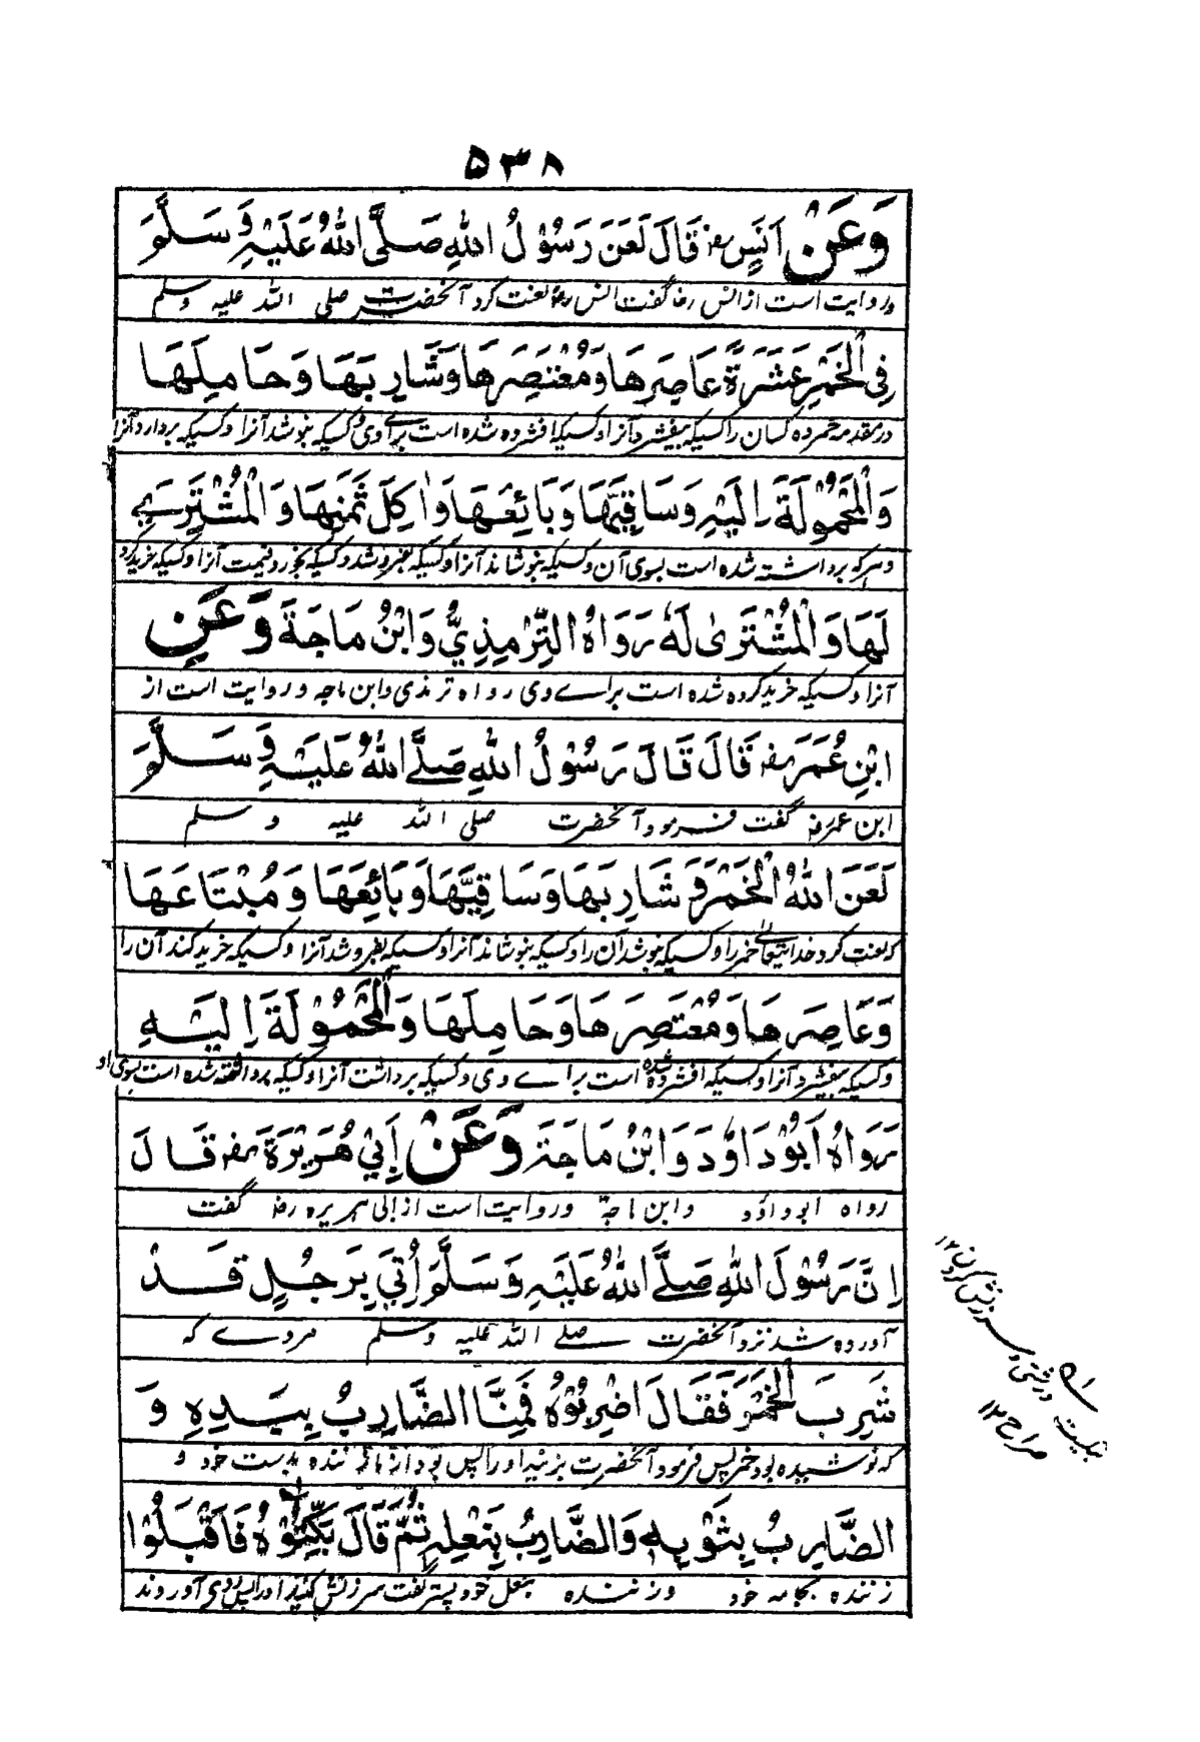 ۵۳۸
وَعَنْ اَنَسٍ رض قَالَ لَعَنَ رَسُوْلُ اللهِ صَلَّى اللهُ عَلَيْهِ وَسَلَّمَ
و روایت است از انس رض گفت انس رض لعنت کرد آنحضرت صلی الله علیه وسلم
فِى الْخَمْرِ عَشَرَةً عَاصِرَهَا وَمُعْتَصِرَهَا وَشَارِبَهَا وَحَامِلَهَا
در مقدمه خمر ده کسان را کسیکه بیفشرد آنرا و کسیکه افشرده شده است برای وی و کسیکه بنوشد آنرا و کسیکه بردارد آنرا
وَالْمَحْمُوْلَةَ اِلَيْهِ وَسَاقِيَهَا وَبَائِعَهَا وَاٰكِلَ ثَمَنِهَا وَالْمُشْتَرِيَ
و هر که برداشته شده است بسوی آن و کسیکه بنوشاند آنرا و کسیکه بفروشد و کسیکه بخورد قیمت آنرا و کسیکه خرید کرد
لَهَا وَالْمُشْتَرٰى لَهٗ رَوَاهُ التِّرْمِذِيُّ وَابْنُ مَاجَةَ وَعَنِ
آنرا و کسیکه خرید کرده شده است براے وی رواه ترمذی وابن ماجه و روایت است از
ابْنِ عُمَرَ رض قَالَ قَالَ رَسُوْلُ اللهِ صَلَّے اللهُ عَلَيْهِ وَسَلَّمَ
ابن عمر رض گفت فرمود آنحضرت صلی الله علیه و سلم
لَعَنَ اللهُ الْخَمْرَ وَ شَارِبَهَا وَسَاقِيَهَا وَبَائِعَهَا وَمُبْتَاعَهَا
که لعنت کرد خدایتعالے خمر را و کسیکه بنوشد آن را و کسیکه بنوشاند آنرا و کسیکه بفروشد آنرا و کسیکه خرید کند آن را
وَعَاصِرَهَا وَمُعْتَصِرَهَا وَحَامِلَهَا وَالْمَحْمُوْلَةَ اِلَيْهِ
و کسیکه بیفشرد آنرا و کسیکه افشرده شده است براے وی و کسیکه برداشت آنرا و کسیکه برداشته شده است بسوی او
رَوَاهُ اَبُوْدَاوٗدَ وَابْنُ مَاجَةَ وَعَنْ اَبِيْ هُرَيْرَةَ رض قَالَ
رواه ابو داؤد وابن ماجة وروایت است از ابی هریره رض گفت
اِنَّ رَسُوْلَ اللهِ صَلَّے اللهُ عَلَيْهِ وَسَلَّمَ اُتِيَ بِرَجُلٍ قَدْ
آورده شد نزد آنحضرت صلے الله علیه وسلم مردے که
شَرِبَ الْخَمْرَ فَقَالَ اضْرِبُوْهُ فَمِنَّا الضَّارِبُ بِيَدِهِ وَ
که نوشیده بود خمر پس فرمود آنحضرت بزنید او را پس بود از ما زننده بدست خود و
الضَّارِبُ بِثَوْبِهٖ وَالضَّارِبُ بِنَعْلِهٖ ثُمَّ قَالَ بَكِّتُوْهُ فَاَقْبَلُوْا
زننده بجامه خود وزننده بنعل خود پستر گفت سرزنش کنید او را پس روی آوردند
تبکیت درشتی و سرزنش کردن ۱۲
صراح ۱۲